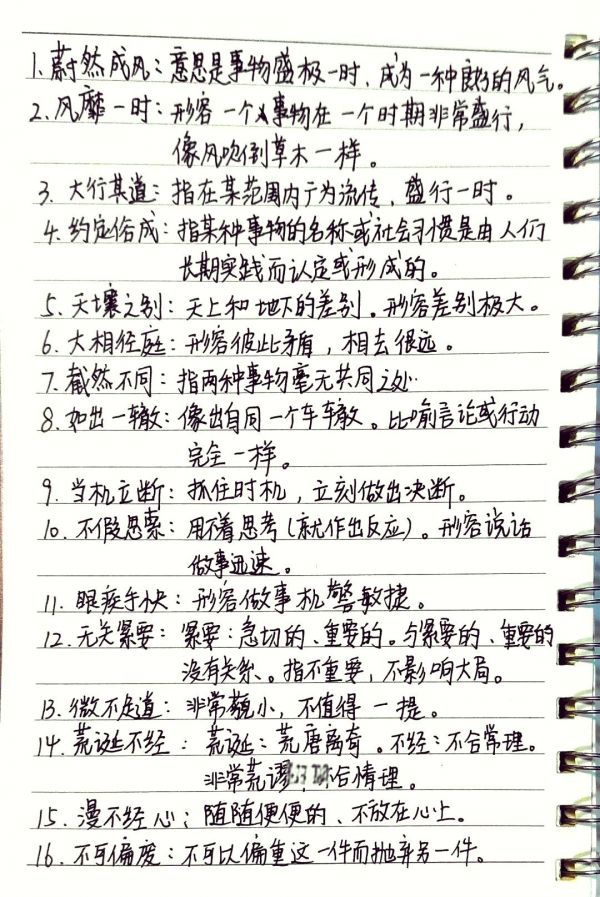 1.蔚然成风：意思是事物盛极一时、成为一种良好的风气。
2.风靡一时：形容一个事物在一个时期非常盛行，
像风吹倒草木一样。
3.大行其道：指在某范围内广为流传，盛行一时。
4.约定俗成：指某种事物的名称或社会习惯是由人们
长期实践而认定或形成的。
5.天壤之别：天上和地下的差别。形容差别极大。
6.大相径庭：形容彼此矛盾，相去很远。
7.截然不同：指两种事物毫无共同之处.
8.如出一辙：像出自同一个车辙。比喻言论或行动
完全一样。
9.当机立断：抓住时机，立刻做出决断。
10.不假思索：用不着思考(就作出反应)。形容说话
做事迅速。
11.眼疾手快：形容做事机警敏捷。
12.无关紧要：紧要：急切的、重要的。与紧要的、重要的
没有关系。指不重要，不影响大局。
13.微不足道：非常藐小，不值得一提。
14.荒诞不经：荒诞：荒唐离奇。不经：不合常理。
非常荒谬，合情理。
15.漫不经心；随随便便的、不放在心上。
16.不可偏废：不可以偏重这一件而抛弃另一件。